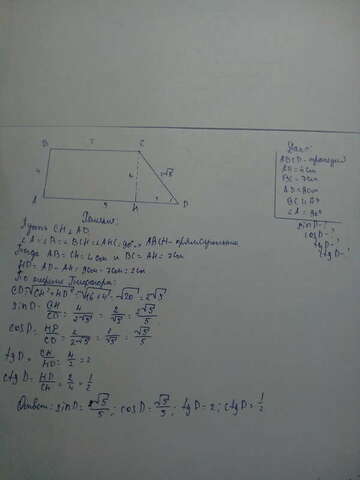 Дано:
ABCD - трапеция
AB = 4 см
BC = 7 см
AD = 9 см
∠A = 90°
sin D - ?
cos D - ?
tg D - ?
ctg D - ?
B 7 C
4 4 2√5
A 7 H 2 D
Решение:
CH ⊥ AD
Тогда AB = CH = 4 см и BC = AH = 7 см
HD = AD - AH = 9 см - 7 см = 2 см
По теореме Пифагора:
CD = √CH² + HD² = √16 + 4 = √20 = 2√5
sin D = CH/CD = 4/2√5 = 2/√5 = 2√5/5
cos D = HD/CD = 2/2√5 = 1/√5 = √5/5
tg D = CH/HD = 4/2 = 2
ctg D = HD/CH = 2/4 = 1/2
Ответ: sin D = 2√5/5; cos D = √5/5; tg D = 2; ctg D = 1/2